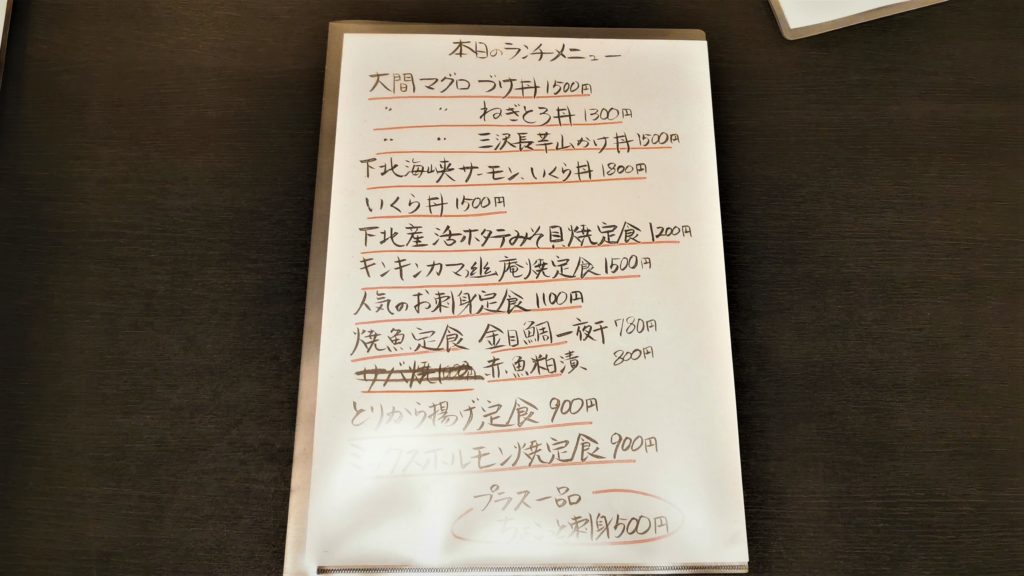 本日のランチメニュー
大間マグロ づけ丼1500円
〃 〃 ねぎとろ丼1300円
〃 〃 三沢長芋山かけ丼1500円
下北海峡サーモン、いくら丼1800円
いくら丼1500円
下北産活ホタテみそ貝焼定食1200円
キンキンカマ幽庵焼定食1500円
人気のお刺身定食1100円
焼魚定食 金目鯛一夜干780円
サバ焼 赤魚粕漬 800円
とりから揚げ定食900円
ミックスホルモン焼定食900円
プラス一品
ちょこっと刺身500円